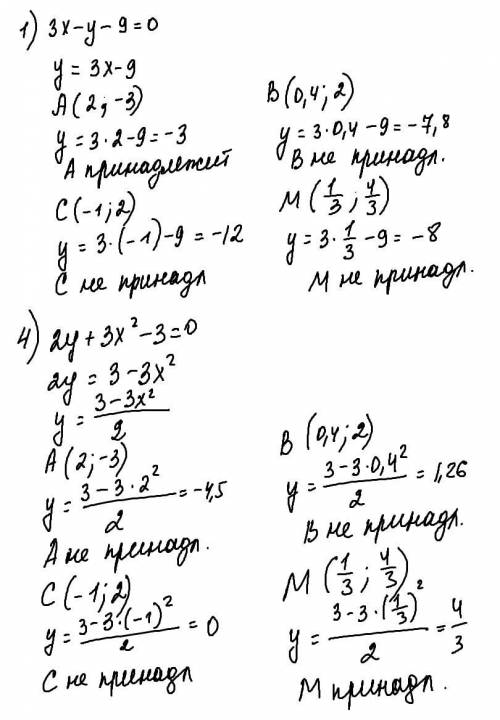 1) 3x-y-9=0
y = 3x-9
A (2; -3)
y = 3·2-9=-3
A принадлежит
B (0,4; 2)
y = 3·0,4-9=-7,8
B не принадл.
C (-1; 2)
y = 3·(-1)-9 = -12
C не принадл
M (1/3; 4/3)
y = 3·1/3-9=-8
M не принадл.
4) 2y+3x²-3=0
2y = 3-3x²
y = (3-3x²)/2
A (2; -3)
y = (3-3·2²)/2 = -4,5
A не принадл.
B (0,4; 2)
y = (3-3·0,4²)/2 = 1,26
B не принадл.
C (-1; 2)
y = (3-3·(-1)²)/2 = 0
C не принадл
M (1/3; 4/3)
y = (3-3·(1/3)²)/2 = 4/3
M принадл.